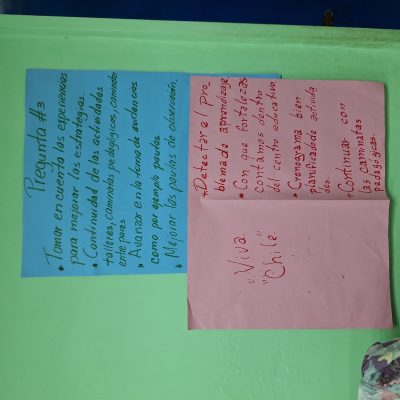 Pregunta #3
* Tomar en cuenta las experiencias
para mejorar las estrategias.
* Continuidad de las actividades
talleres, caminatas pedagógicas, caminatas
entre pares
* Avanzar en la toma de evidencias
como por ejemplo pautas
* Mejorar las pautas de observación.
* Detectar el pro
blema de aprendizaje
* Con que fortalezas
contamos dentro
del centro educativo.
* Cronograma bien
planificado de activida
des.
* Continuar con
las caminatas
pedagogicas.
"Viva
Chile".